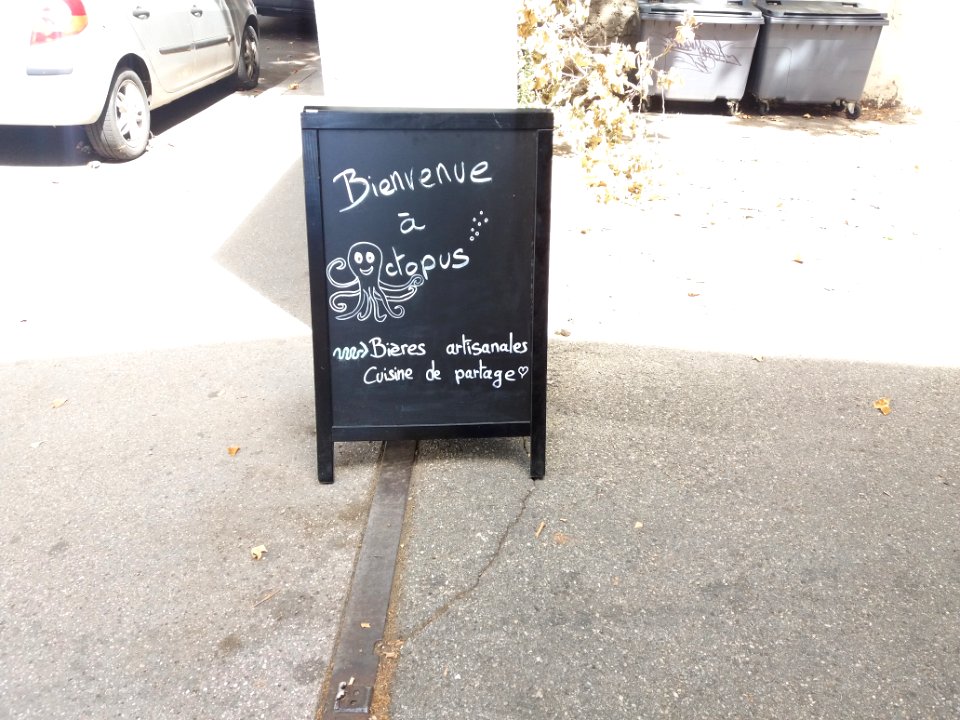 Bienvenue
à
Octopus
Bières artisanales
Cuisine de partage